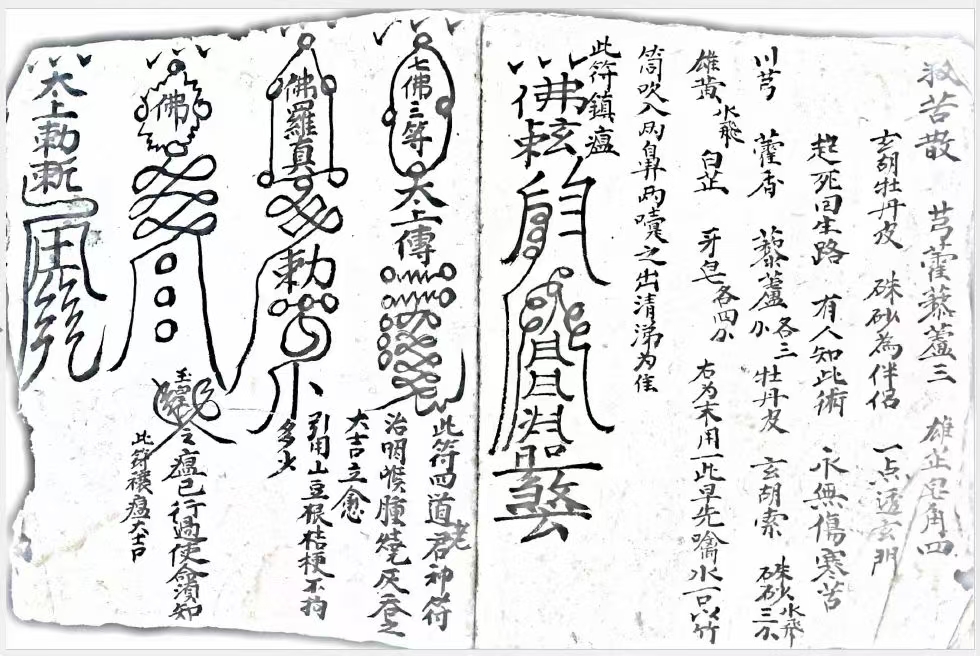 救苦散 芎霍藜蘆三 雄芷皂角四
玄胡牡丹皮 硃砂為伴侶 一点透玄門
起死回生路 有人知此術 永無傷寒苦
川芎 藿香 藜蘆各三分 牡丹皮 玄胡索 硃砂水飛三分
雄黄水飛 白芷 牙皂各四分 右为末用一此早先噙水一口以竹
筒吹入两自鼻两嚏之出清涕为佳
此符鎮瘟
佛
七佛三等
太上傳
此符四道老君神符
治咽喉腫燒灰吞之
大吉立愈
佛羅真
勅
引用山豆根桔梗不拘
多少
佛
之瘟已行過使命須知
此符禳瘟大吉
太上勅